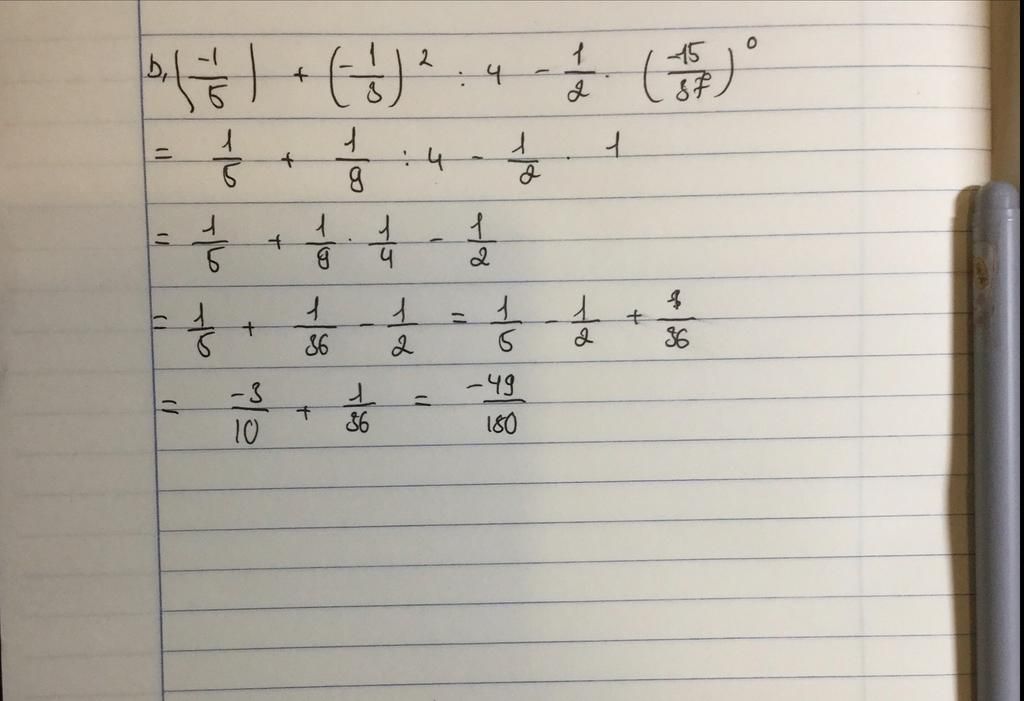 b, (-1/5) + (-1/3)² : 4 - 1/2 . (-15/37)⁰
= 1/5 + 1/9 : 4 - 1/2 . 1
= 1/5 + 1/9 . 1/4 - 1/2
= 1/5 + 1/36 - 1/2 = 1/5 - 1/2 + 1/36
= -3/10 + 1/36 = -49/180